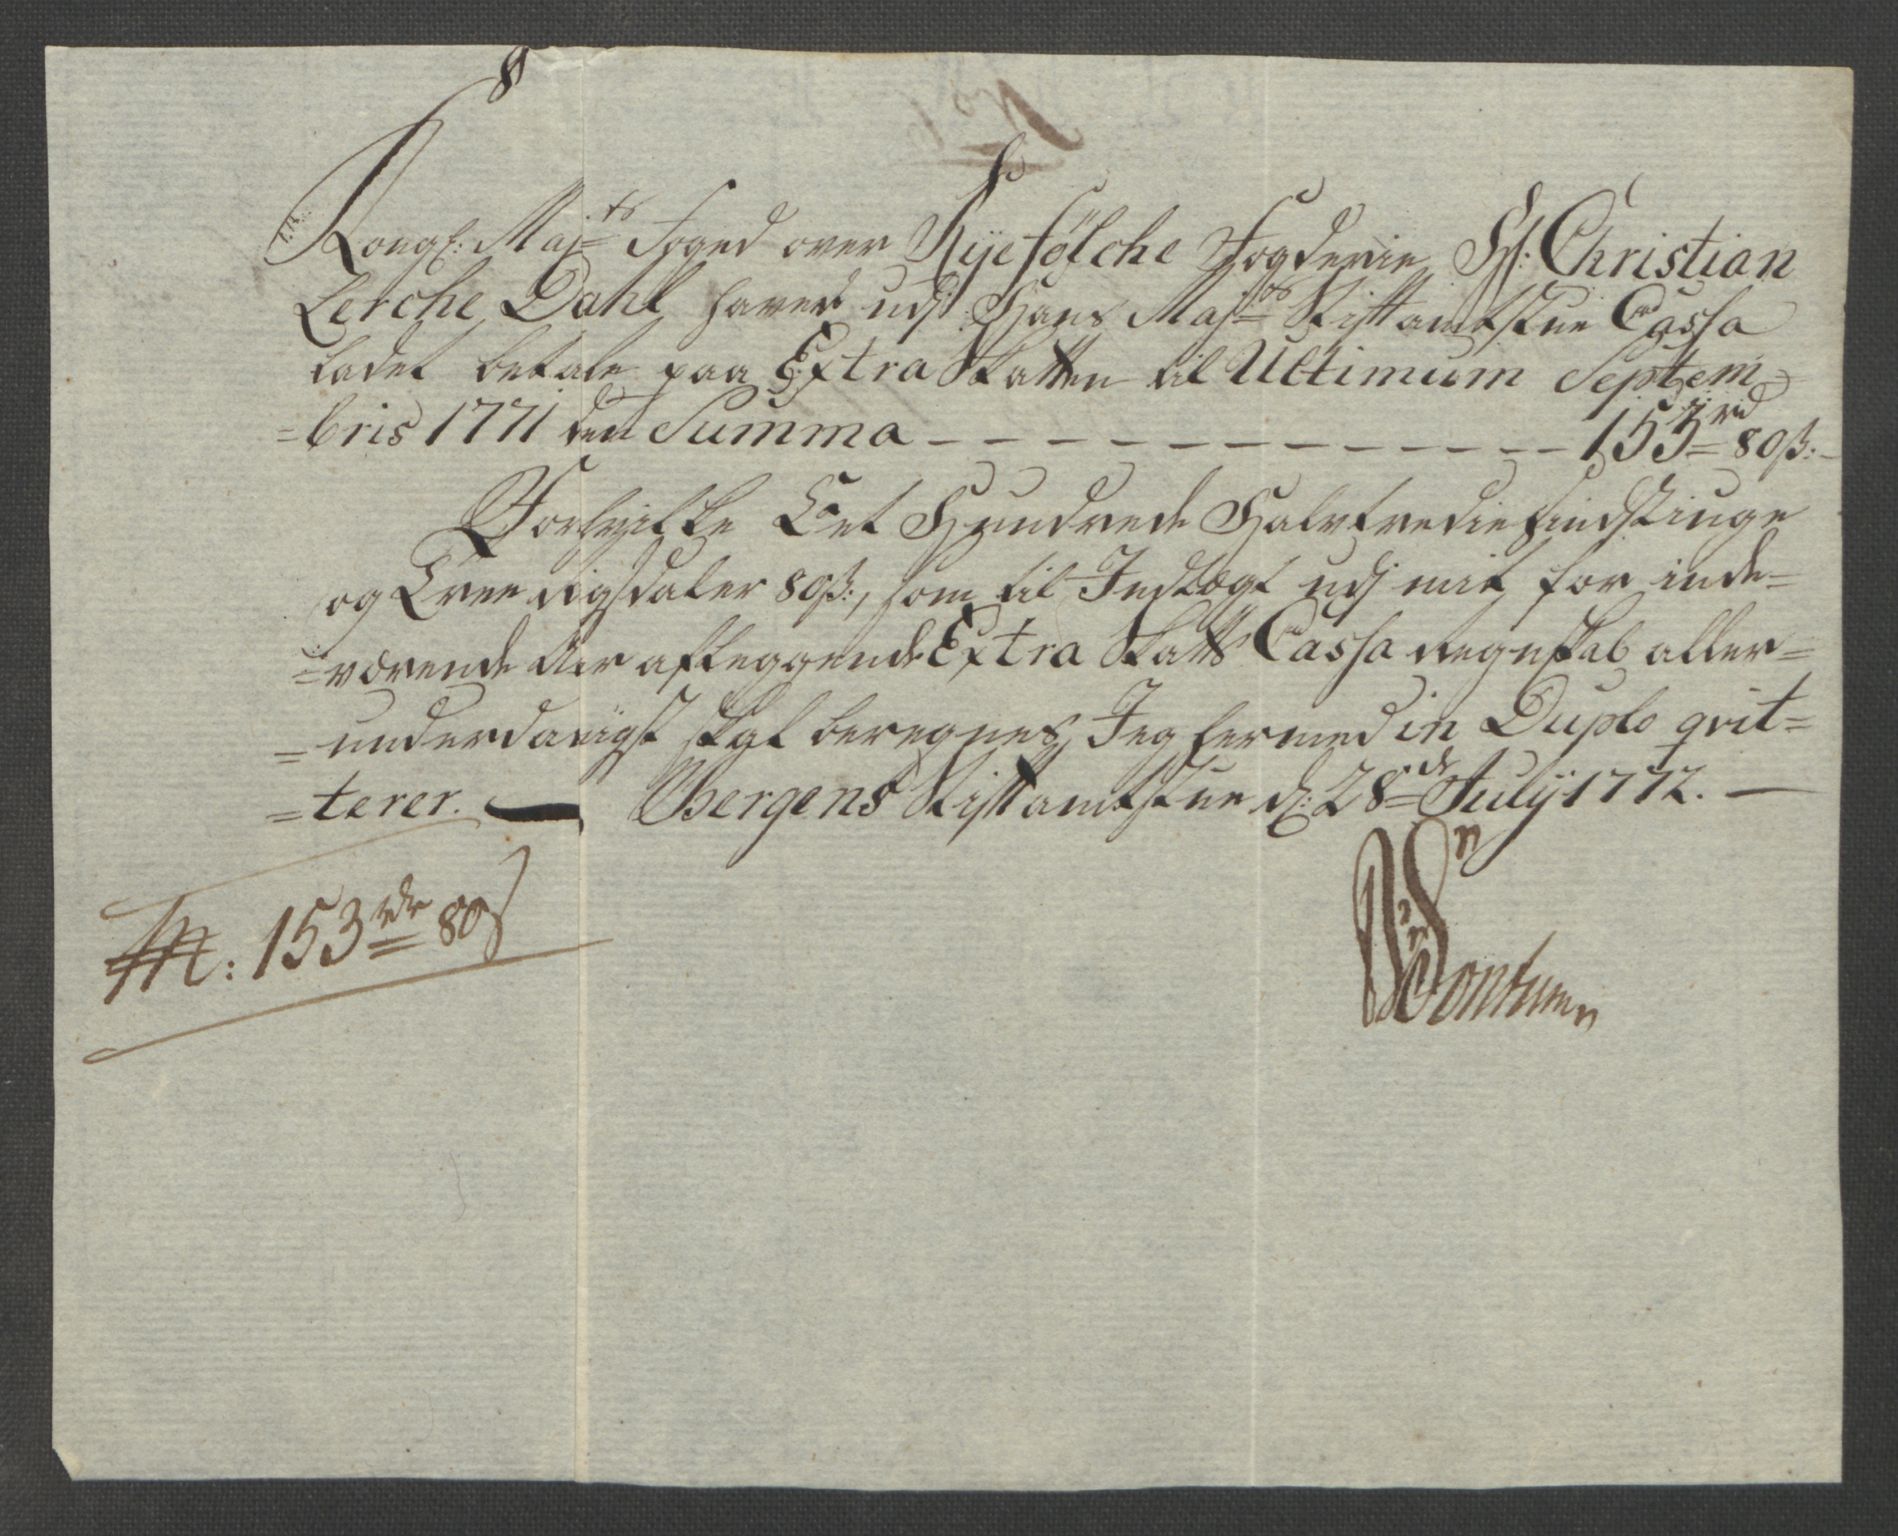 Kongl: Maj:ts Foged over Ryefølche Fogderie Hr: Christian
Lerche Dahl haver udj Hans Maj:ts Stiftamtstue Cassa
ladet betale paa Extra Skatten til Ultimum Septem=
=bris 1771 den Summa — — — — — — 153 rd 80 ß:
Forskrifte Eet Hundrede Halvtrediesindstiuge
og Tree Rigsdaler 80 ß:, som til Indtægt udj mit for inde=
=værende Aar aflæggende Extra Skatts Cassa Regnskab aller=
=underdanigst skal beregnes, Jeg hermed in Duplo qvit=
=terer. — Bergens Stiftamtstue d: 28de Julij 1772. —
153 rdr 80 ß